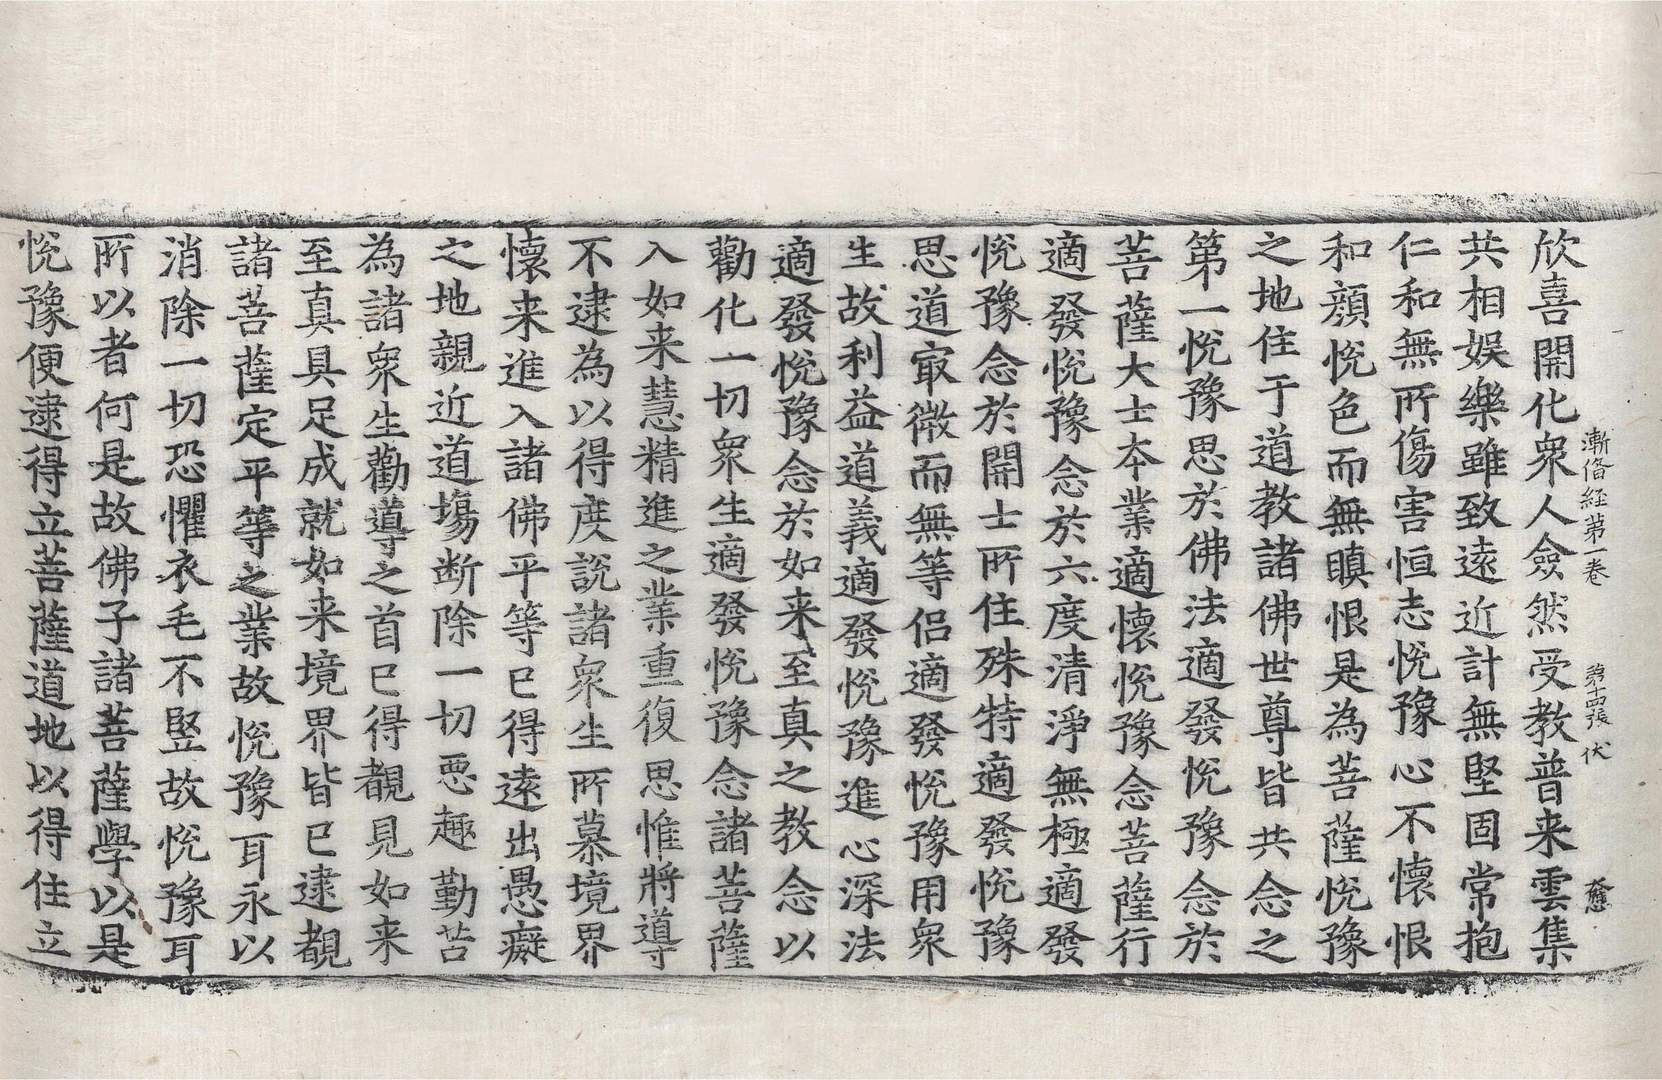 漸俻經第一卷　第十四張　伏
欣喜開化衆人僉然受教普来雲集
共相娛樂雖致遠近計無堅固常抱
仁和無所傷害恒志恱豫心不懷恨
和顔恱色而無瞋恨是為菩薩恱豫
之地住于道教諸佛世尊皆共念之
第一恱豫思於佛法適發恱豫念於
菩薩大士夲業適懷恱豫念菩薩行
適發恱豫念於六度清淨無極適發
恱豫念於開士所住殊特適發恱豫
思道㝡微而無等侣適發恱豫用衆
生故利益道義適發恱豫進心深法
適發恱豫念於如来至真之教念以
勸化一切衆生適發恱豫念諸菩薩
入如来慧精進之業重復思惟將導
不逮為以得度說諸衆生所慕境界
懷来進入諸佛平等已得遠出愚癡
之地親近道場断除一切悪趣勤苦
為諸衆生勸導之首已得覩見如来
至真具足成就如来境界皆已逮覩
諸菩薩定平等之業故恱豫耳永以
消除一切恐懼衣毛不竪故恱豫耳
所以者何是故佛子諸菩薩學以是
恱豫便逮得立菩薩道地以得住立